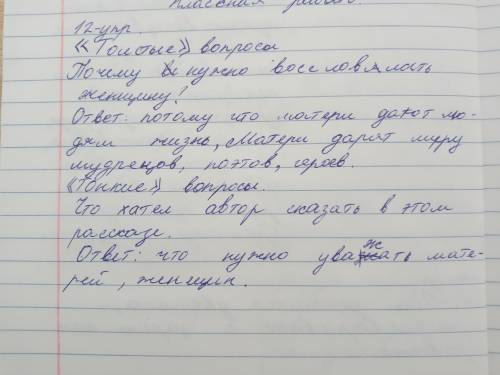 Классная работа.
12-упр.
«Толстые» вопросы
Почему нужно восславлать
женщину?
Ответ: потому что матери дают лю-
дям жизнь, Матери дарят миру
мудрецов, поэтов, героев.
«Тонкие» вопросы.
Что хател автор сказать в этом
рассказе.
Ответ: что нужно уважать мате-
рей, женщин.